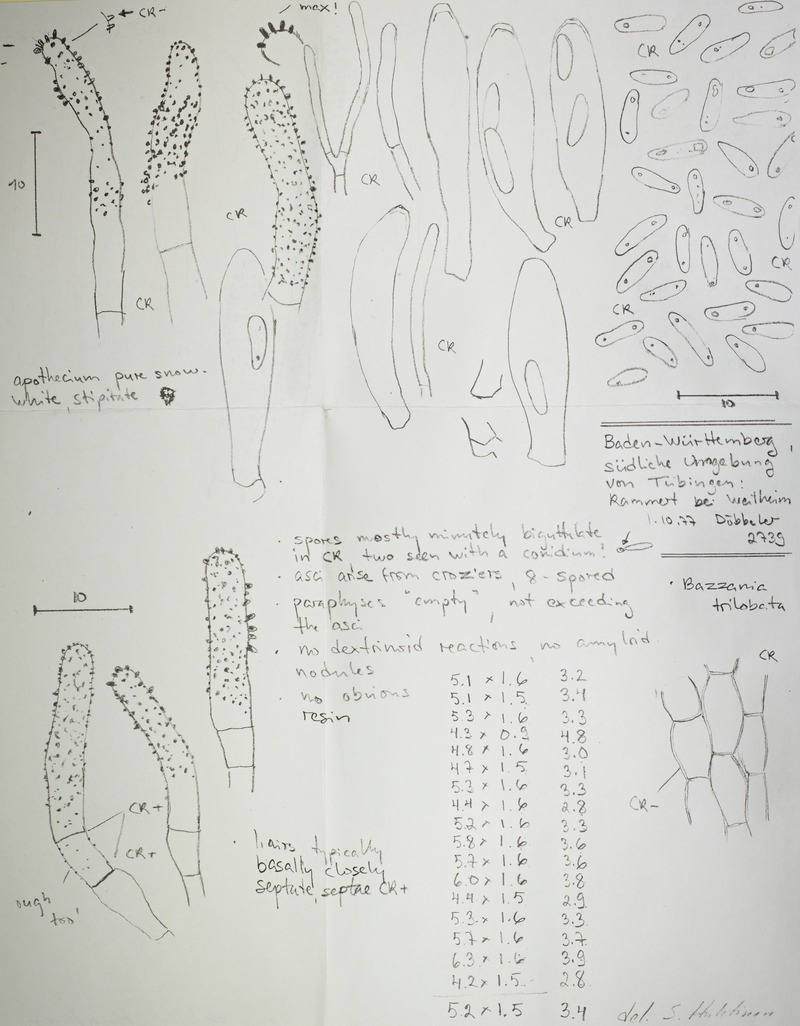 CR-
max!
CR
CR
10
CR
CR
CR
CR
CR
CR
apothecium pure snow-
white, stipitate
10
Baden-Württemberg,
südliche Umgebung
von Tübingen:
Rammert bei Weilheim
1.10.77 Döbbeler
2739
· Bazzania
trilobata
· spores mostly minutely biguttulate
in CR two seen with a conidium!
· asci arise from croziers, 8-spored
· paraphyses "empty", not exceeding
the asci
· no dextrinoid reactions, no amyloid
nodules
· no obvious
resin
10
5.1 × 1.6 3.2
5.1 × 1.5 3.4
5.3 × 1.6 3.3
4.3 × 0.9 4.8
4.8 × 1.6 3.0
4.7 × 1.5 3.1
5.3 × 1.6 3.3
4.4 × 1.6 2.8
5.2 × 1.6 3.3
5.8 × 1.6 3.6
5.7 × 1.6 3.6
6.0 × 1.6 3.8
4.4 × 1.5 2.9
5.3 × 1.6 3.3
5.7 × 1.6 3.7
6.3 × 1.6 3.9
4.2 × 1.5 2.8
5.2 × 1.5 3.4
CR
CR-
CR+
CR+
· hairs typically
basally closely
septate, septae CR+
too!
del. S.